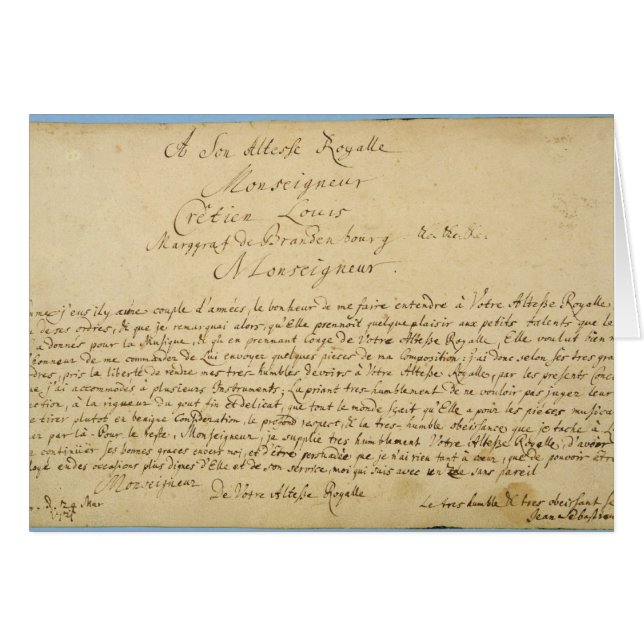 A Son Altesse Royalle
Monseigneur
Crêtien Louis
Marggraf de Brandenbourg
Monseigneur.
j'eus il y a une couple d'années, le bonheur de me faire entendre à Votre Altesse Royalle
de ses ordres, & que je remarquai alors, qu'Elle prennoit quelque plaisir aux petits talents que le
a donnés pour la Musique, & qu'en prennant Conge de Votre Altesse Royalle, Elle voulut bien
honneur de me commander de Lui envoyer quelques pieces de ma Composition: j'ai donc selon ses tres
ordres, pris la liberté de rendre mes tres-humbles devoirs à Votre Altesse Royalle, par les presents
j'ai accommodés à plusieurs Instruments; La priant tres-humblement de ne vouloir pas juger leur
à la rigueur du gout fin et delicat, que tout le monde sçait qu'Elle a pour les piéces
tirer plutot en benigne Consideration, le profond respect, & la tres-humble obeissance que je tache à
par là. Pour le reste, Monseigneur, je supplie tres humblement Votre Altesse Royalle, d'avoir
continüer ses bonnes graces envers moi, et d'être persuadée que je n'ai rien tant à cœur, que de pouvoir
en des occasions plus dignes d'Elle et de son service, moi qui suis avec un zele sans pareil
Monseigneur
De Votre Altesse Royalle
d. 24 Mar
1721
Le tres humble & tres obeissant
Jean Sebastien